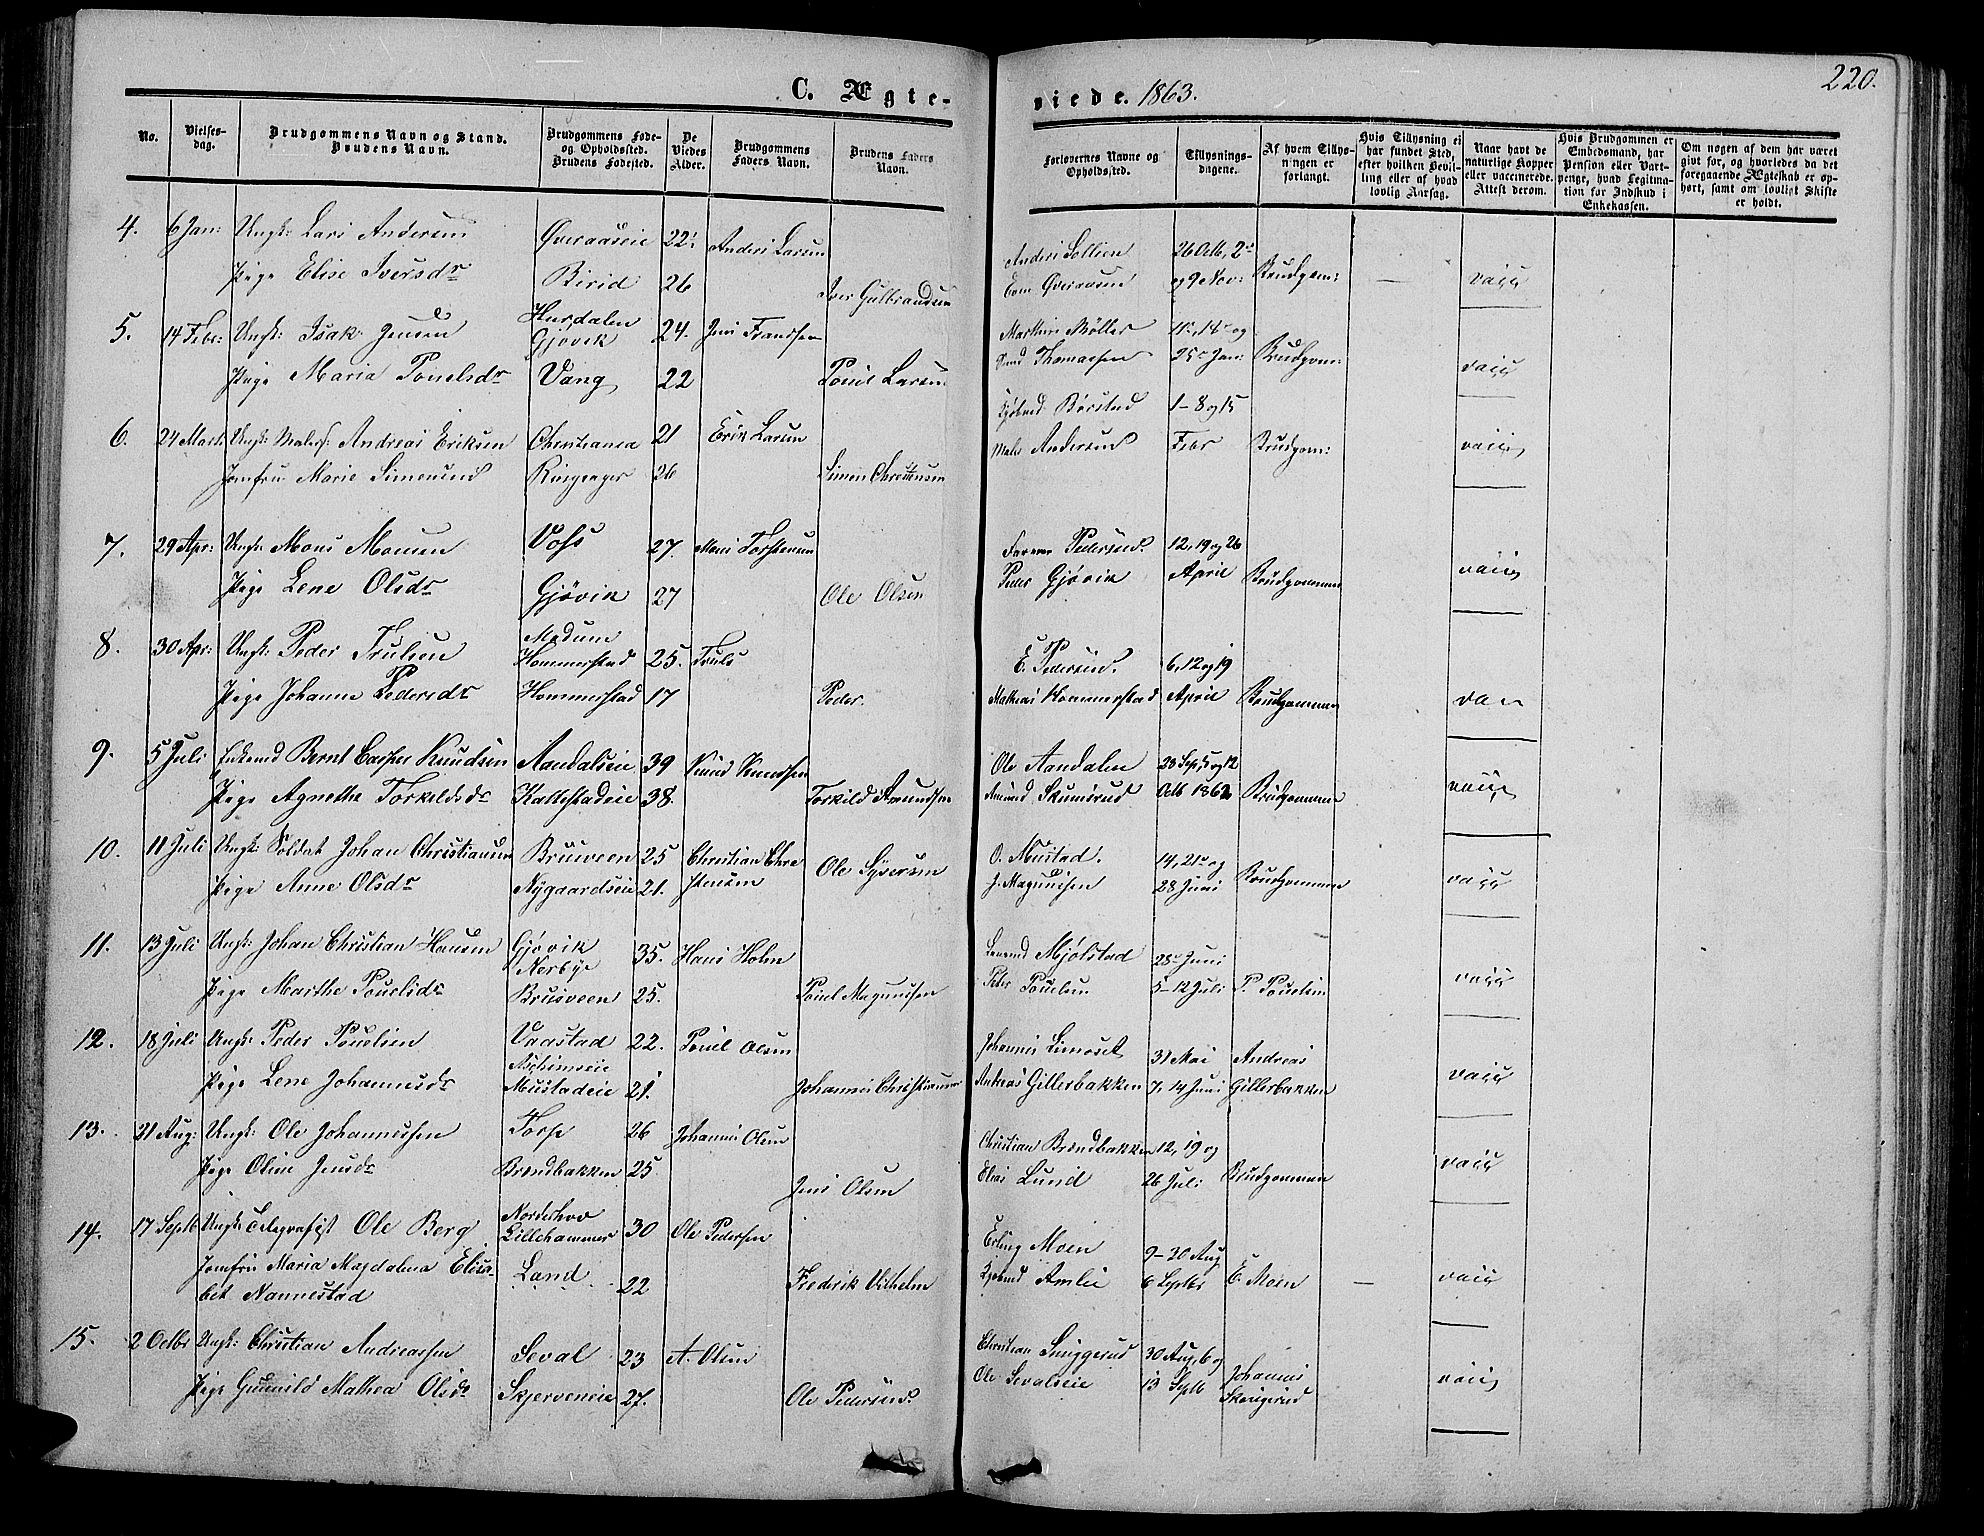 C. Ægte-
viede. 1863.
220.
No.
Vielses-
dag.
Brudgommens Navn og Stand.
Brudens Navn.
Brudgommens Føde-
og Opholdssted.
Brudens Fødested.
De
Viedes
Alder.
Brudgommens
Faders Navn.
Brudens Faders
Navn.
Forlovernes Navne og
Opholdssted.
Tillysnings-
dagene.
Af hvem Tillys-
ningen er
forlangt.
Hvis Tillysning ei
har fundet Sted,
efter hvilken Bevil-
ling eller af hvad
lovlig Aarsag.
Naar havt de
naturlige Kopper
eller vaccinerede.
Attest derom.
Hvis Brudgommen er
Embedsmand, har
Pension eller Vart-
penge, hvad Legitima-
tion for Indskud i
Enkekassen.
Om nogen af dem har været
givt før, og hvorledes da det
foregaaende Ægteskab er op-
hørt, samt om lovligt Skifte
er holdt.
4. 6 Jan: Ungk: Lars Andersen Øveraaseie 22. Anders Larsen
Pige Elise Iversdr Birid 26 Iver Gulbrandsen
Anders Sollien 26 Octb, 2
Even Øveraasen og 9 Nov: Brudgom: — vacc
5. 14 Febr: Ungk: Isak Jensen Hurdalen Gjøvik 24. Jens Frandsen
Pige Maria Pouelsdr Vang 22 Pouel Larsen
Marthin Møller 11, 18 og
Thomassen 25 Jan: Brudgom: vacc
6. 24 Marts Ungk: Malers: Andreas Eriksen Christiania 21 Erik Larsen
Jomfru Marie Simensend Ringsager 26 Simen Christensen
Børstad 1-8 og 15
Maler Andersen Febr Brudgom: vacc
7. 29 Apr: Ungk: Mons Monsen Voss 27. Mons Torstensen
Pige Lene Olsdr Gjøvik 27 Ole Olsen
Farver Pedersen 12, 19 og 26
Peder Gjøvik April Brudgommen vacc
8. 30 Apr: Ungk: Peder Trulsen Modum Hommerstad 25. Truls
Pige Johanne Pedersdr Hommerstad 17 Peder.
E. Pedersen. 6, 12 og 19
Mathias Hommerstad April Brudgommen vac
9. 5 Juli Enkemd Bernt Casper Knudsen Aandalseie 39 Knud Knudsen
Pige Agnethe Torkildsdr Kallestadeie 38. Torkild Amundsen
Ole Aandalen 28 Sep, 5 og 12
Amund Skumsrud Octb 1862 Brudgommen vacc
10. 11 Juli Ungk: Soldat Johan Christiansen Brusveen 25 Christian Chri
Pige Anne Olsdr Nygaardseie 21. stensen Ole Syversen
O. Mustad. 14, 21 og
J. Magnusen 28 Juni Brudgommen vacc
11. 13 Juli Ungk: Johan Christian Hansen Gjøvik Nerbye 35. Hans Holm
Pige Marthe Pouelsdr Brusveen 25. Pouel Magnusen
Mjølstad 28 Juni
Peter Pouelsen 5-12 Juli P. Pouelsen vacc
12. 18 Juli Ungk: Peder Pouelsen Vaastad 22. Pouel Olsen
Aschimseie
Pige Lene Johannesdr Mustadeie 21. Johannes Christiansen
Johannes Limoset 31 Mai Andreas
Andreas Gillerbakken 7, 14 Juni Gillerbakken vacc
13. 21 Aug: Ungk: Ole Johannessen Torp 26 Johannes Olsen
Pige Oline Jensdr Brøndbakken 25 Jens Olsen
Christian Brøndbakken 12, 19 og
Elias Lund 26 Juli Brudgommen vacc
14. 17 Septb Ungk: Telegrafist Ole Berg Norderhov Lillehammer 30 Ole Pedersen
Jomfru Maria Magdalena Elisa- Land 22 Fredrik Vilhelm
bet Nannestad
Erling Moen 9-30 Aug
Amlie 6 Septbr E. Moen — vacc
15. 2 Octbr Ungk: Christian Andreassen Seval 23 A. Olsen
Pige Gunnild Mathea Olsdr Skjerveneie 27. Ole Pedersen
Christian 30 Aug, 6 og Johannes
Ole Sevalseie 13 Septb vacc